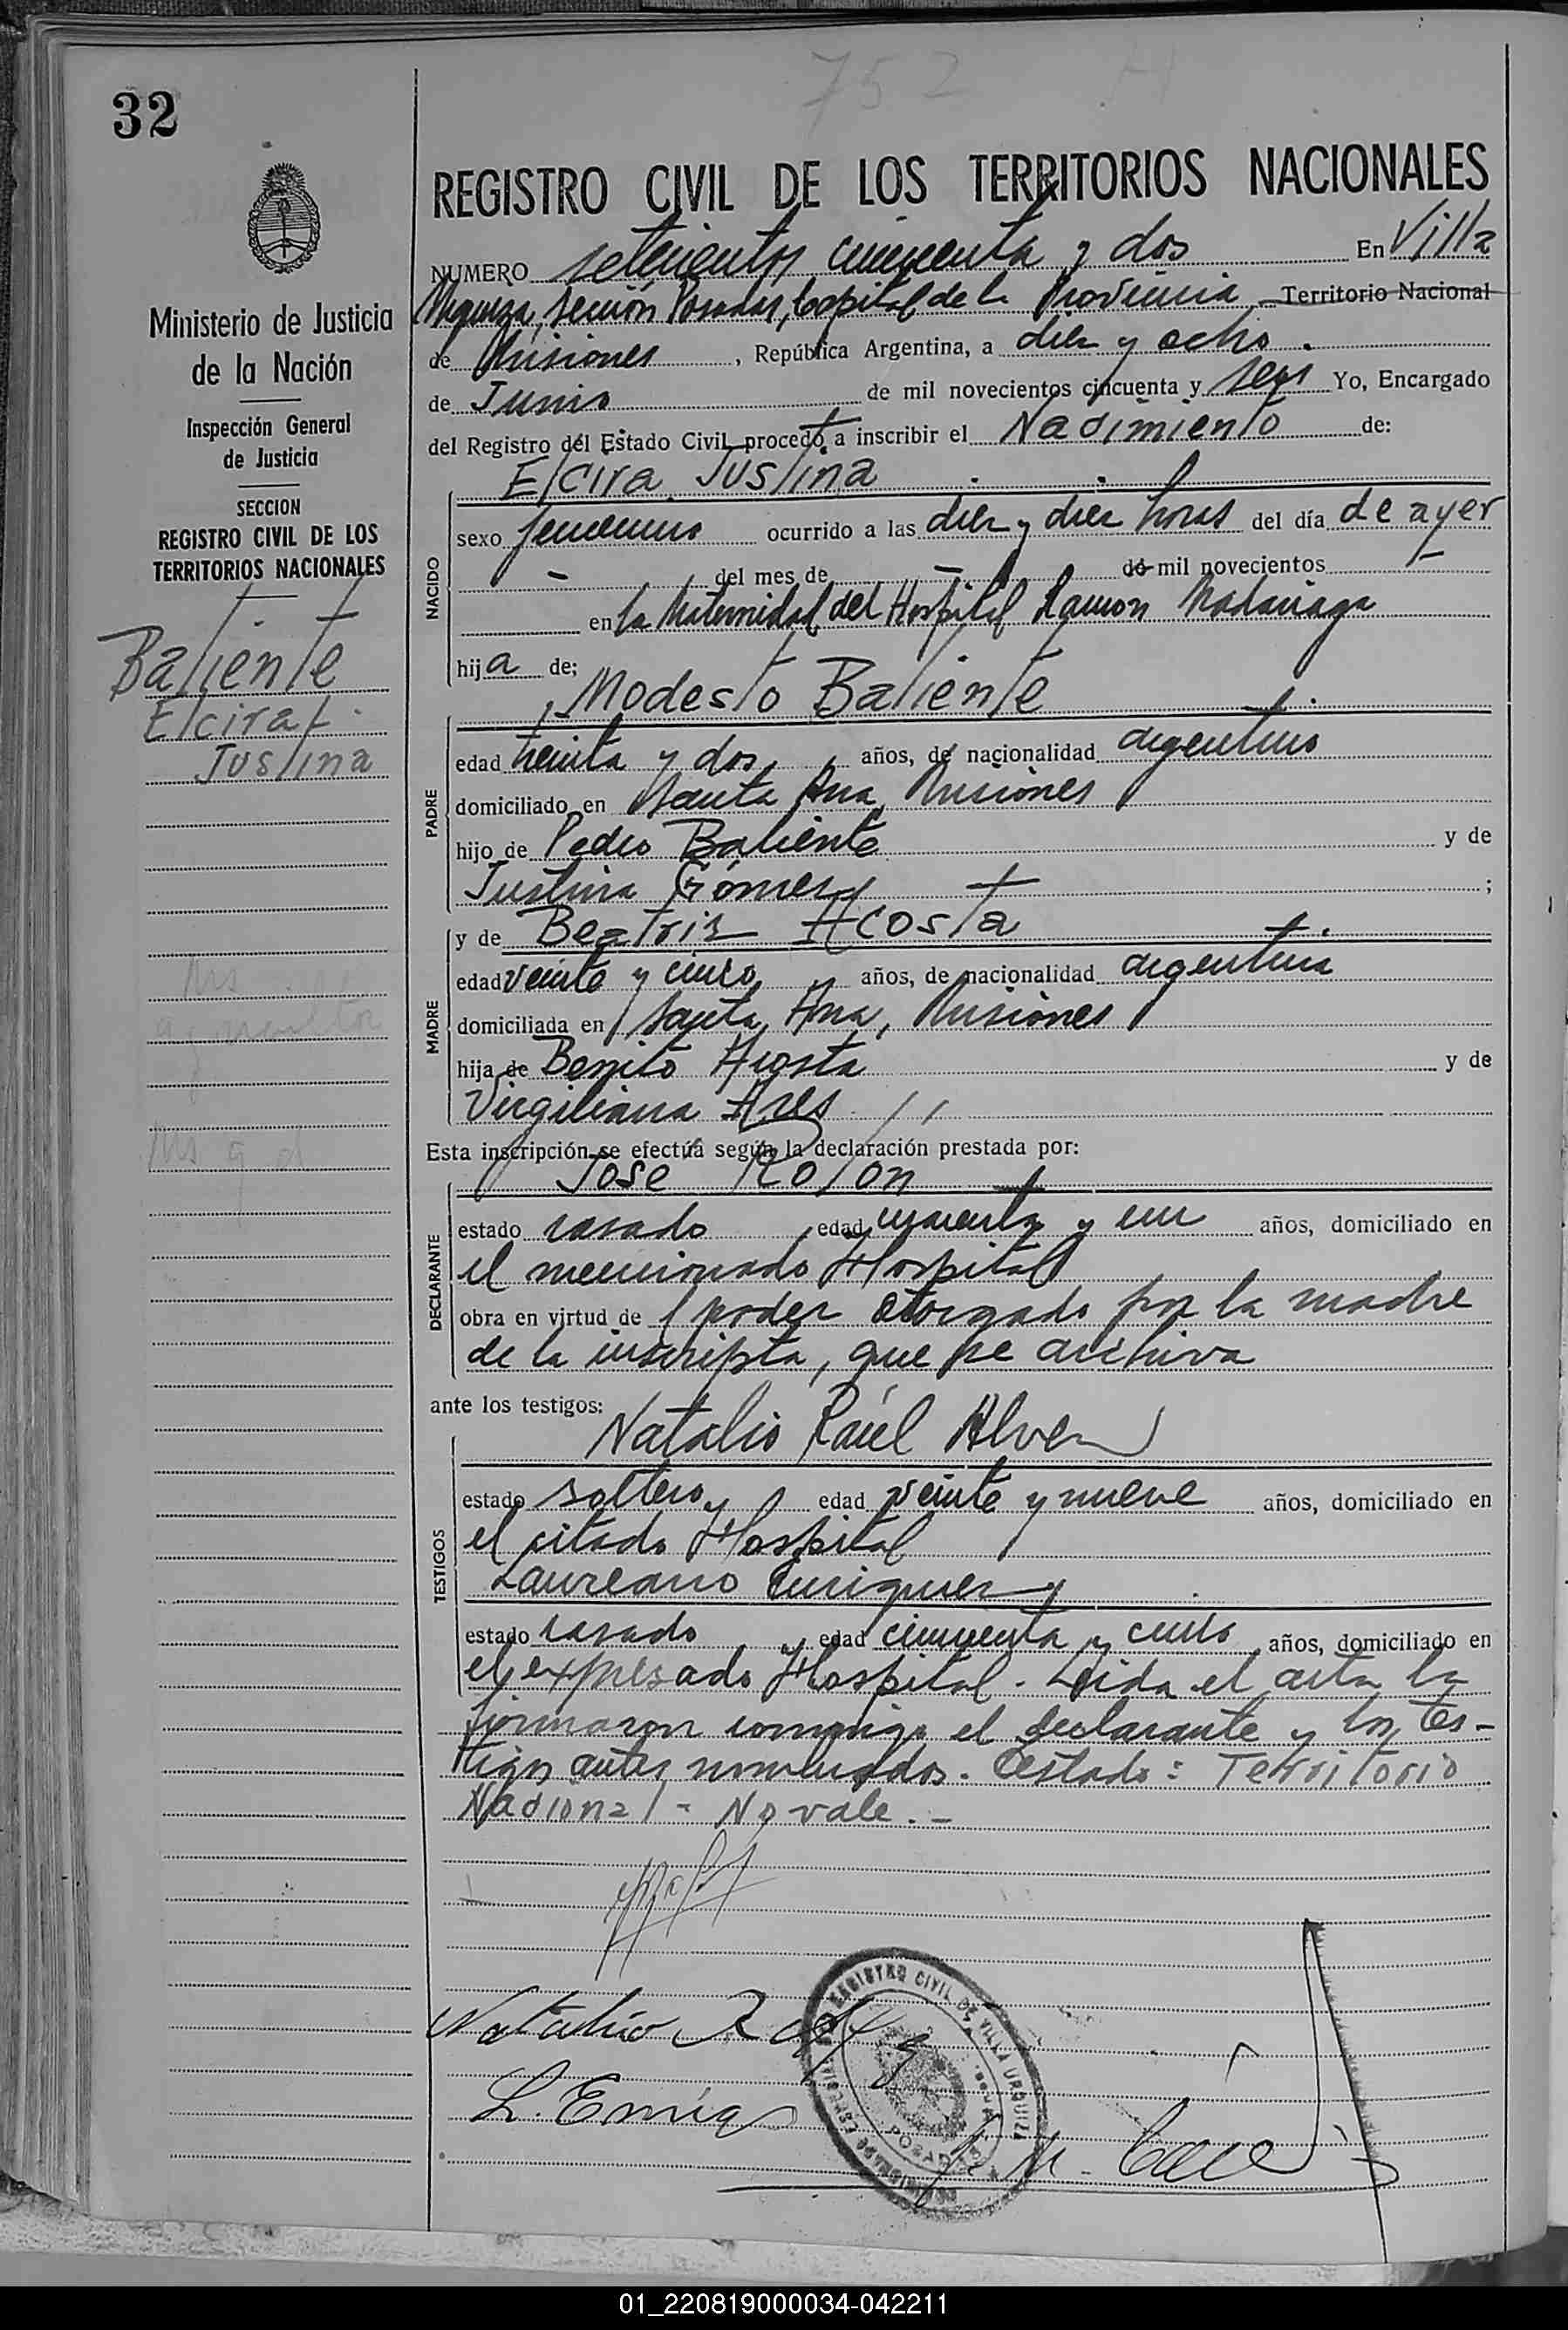 752
32
REGISTRO CIVIL DE LOS TERRITORIOS NACIONALES
NUMERO setecientos cincuenta y dos En Villa
Urquiza, Sección Posadas, Capital de la Provincia Territorio Nacional
de Misiones, República Argentina, a diez y ocho.
de Junio de mil novecientos cincuenta y seys Yo, Encargado
del Registro del Estado Civil procedo a inscribir el Nacimiento de:
Elcira Justina
Ministerio de Justicia
de la Nación
Inspección General
de Justicia
SECCION
REGISTRO CIVIL DE LOS
TERRITORIOS NACIONALES
Baliente
Elcira
Justina
NACIDO
sexo femenino ocurrido a las diez y diez horas del día de ayer
- del mes de - de mil novecientos -
en la Maternidad del Hospital Ramon Madariaga
hija de:
Modesto Baliente
PADRE
edad treinta y dos años, de nacionalidad argentino
domiciliado en Santa Ana, Misiones
hijo de Pedro Baliente y de
Justina Gómez ;
MADRE
y de Beatriz Acosta
edad veinte y cinco años, de nacionalidad argentina
domiciliada en Santa Ana, Misiones
hija de Benito Acosta y de
Virgiliana Ares
Esta inscripción se efectúa según la declaración prestada por:
José Rolón
DECLARANTE
estado casado edad cuarenta y un años, domiciliado en
el mencionado Hospital
obra en virtud de poder otorgado por la madre
de la inscripta, que se archiva
ante los testigos:
Natalio Raúl Alvez
TESTIGOS
estado soltero edad veinte y nueve años, domiciliado en
el citado Hospital
Laureano Enriquez
estado casado edad cincuenta y cinco años, domiciliado en
el expresado Hospital. Leida el acta la
firmaron conmigo el declarante y los tes-
tigos antes nombrados. Testado: Territorio
Nacional - No vale. -
Natalio R
L. Enriq
REGISTRO CIVIL DE VILLA URQUIZA
POSADAS
01_220819000034-042211